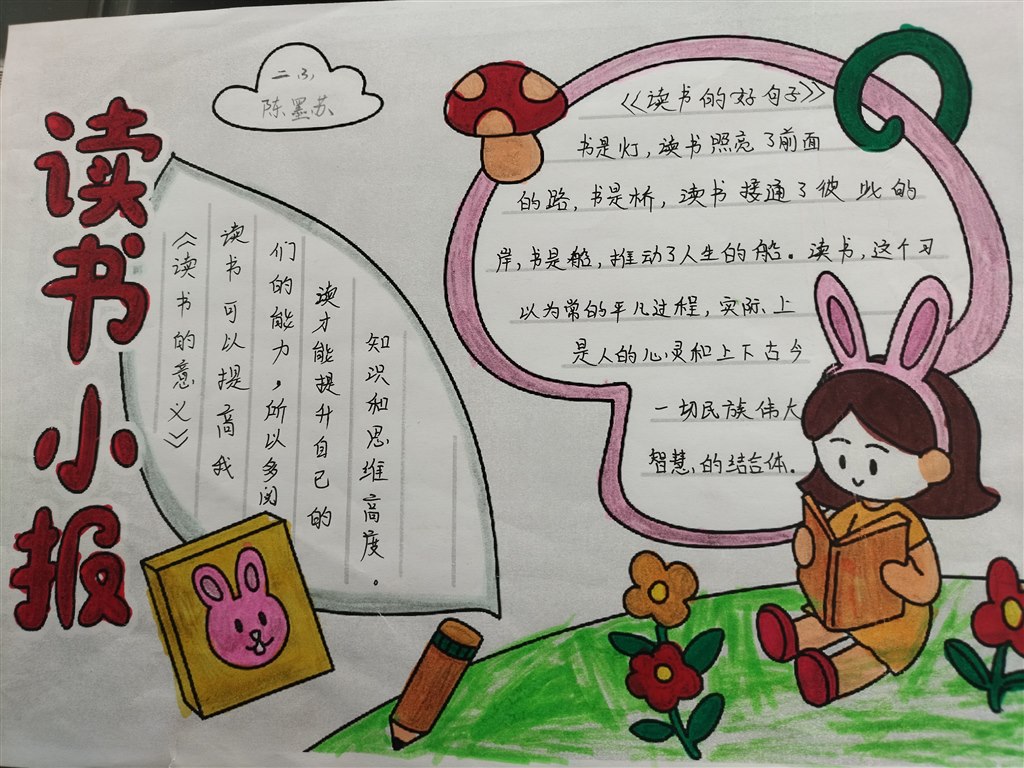 读书小报
二(3)
陈墨苏
《读书的意义》
读书可以提高我
们的能力，所以多阅
读才能提升自己的
知识和思维高度。
《读书的好句子》
书是灯，读书照亮了前面
的路，书是桥，读书接通了彼此的
岸，书是船，推动了人生的船。读书，这个习
以为常的平凡过程，实际上
是人的心灵和上下古今
一切民族伟大
智慧的结合体.